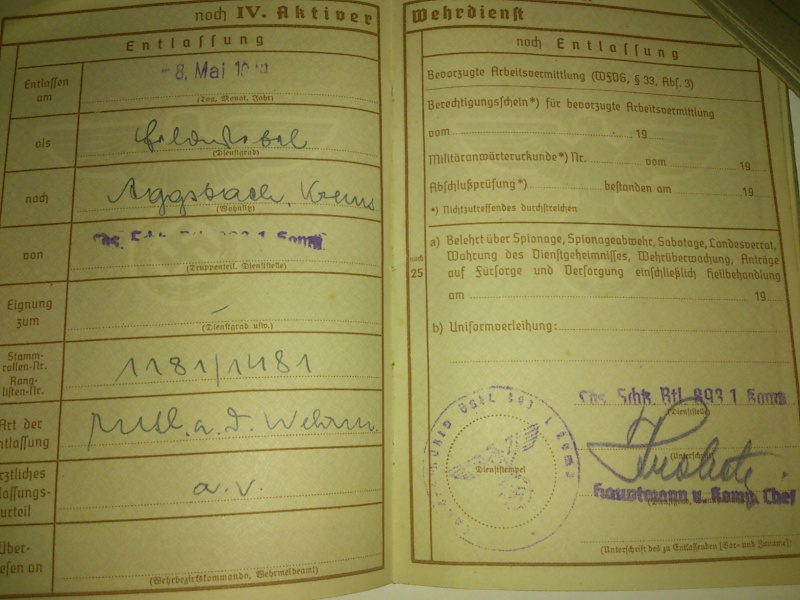 noch IV. Aktiver
Entlassung
Entlassen
am
8. Mai
(Tag, Monat, Jahr)
als
Feldwebel
(Dienstgrad)
nach
Aggsbach, Krems
(Wohnsitz)
von
Lds. Schtz. Btl. 893 1. Komp.
(Truppenteil, Dienststelle)
Eignung
zum
–
(Dienstgrad usw.)
Stamm-
rollen-Nr.
Rang-
listen-Nr.
1181/1481
Art der
ntlassung
a. d. Wehrm.
rztliches
lassungs-
urteil
a.v.
Über-
esen an
(Wehrbezirkskommando, Wehrmeldeamt)
Wehrdienst
noch Entlassung
Bevorzugte Arbeitsvermittlung (WFVG, § 33, Abs. 3)
Berechtigungsschein*) für bevorzugte Arbeitsvermittlung
vom 19
Militäranwärterurkunde*) Nr. vom 19
Abschlußprüfung*) bestanden am 19
*) Nichtzutreffendes durchstreichen
noch
25
a) Belehrt über Spionage, Spionageabwehr, Sabotage, Landesverrat,
Wahrung des Dienstgeheimnisses, Wehrüberwachung, Anträge
auf Fürsorge und Versorgung einschließlich Heilbehandlung
am 19
b) Uniformverleihung:
Lds. Schtz. Btl. 893 1. Komp.
(Dienststelle)
Dienststempel
(Unterschrift)
Hauptmann u. Komp. Chef
(Unterschrift des zu Entlassenden [Vor- und Zuname])